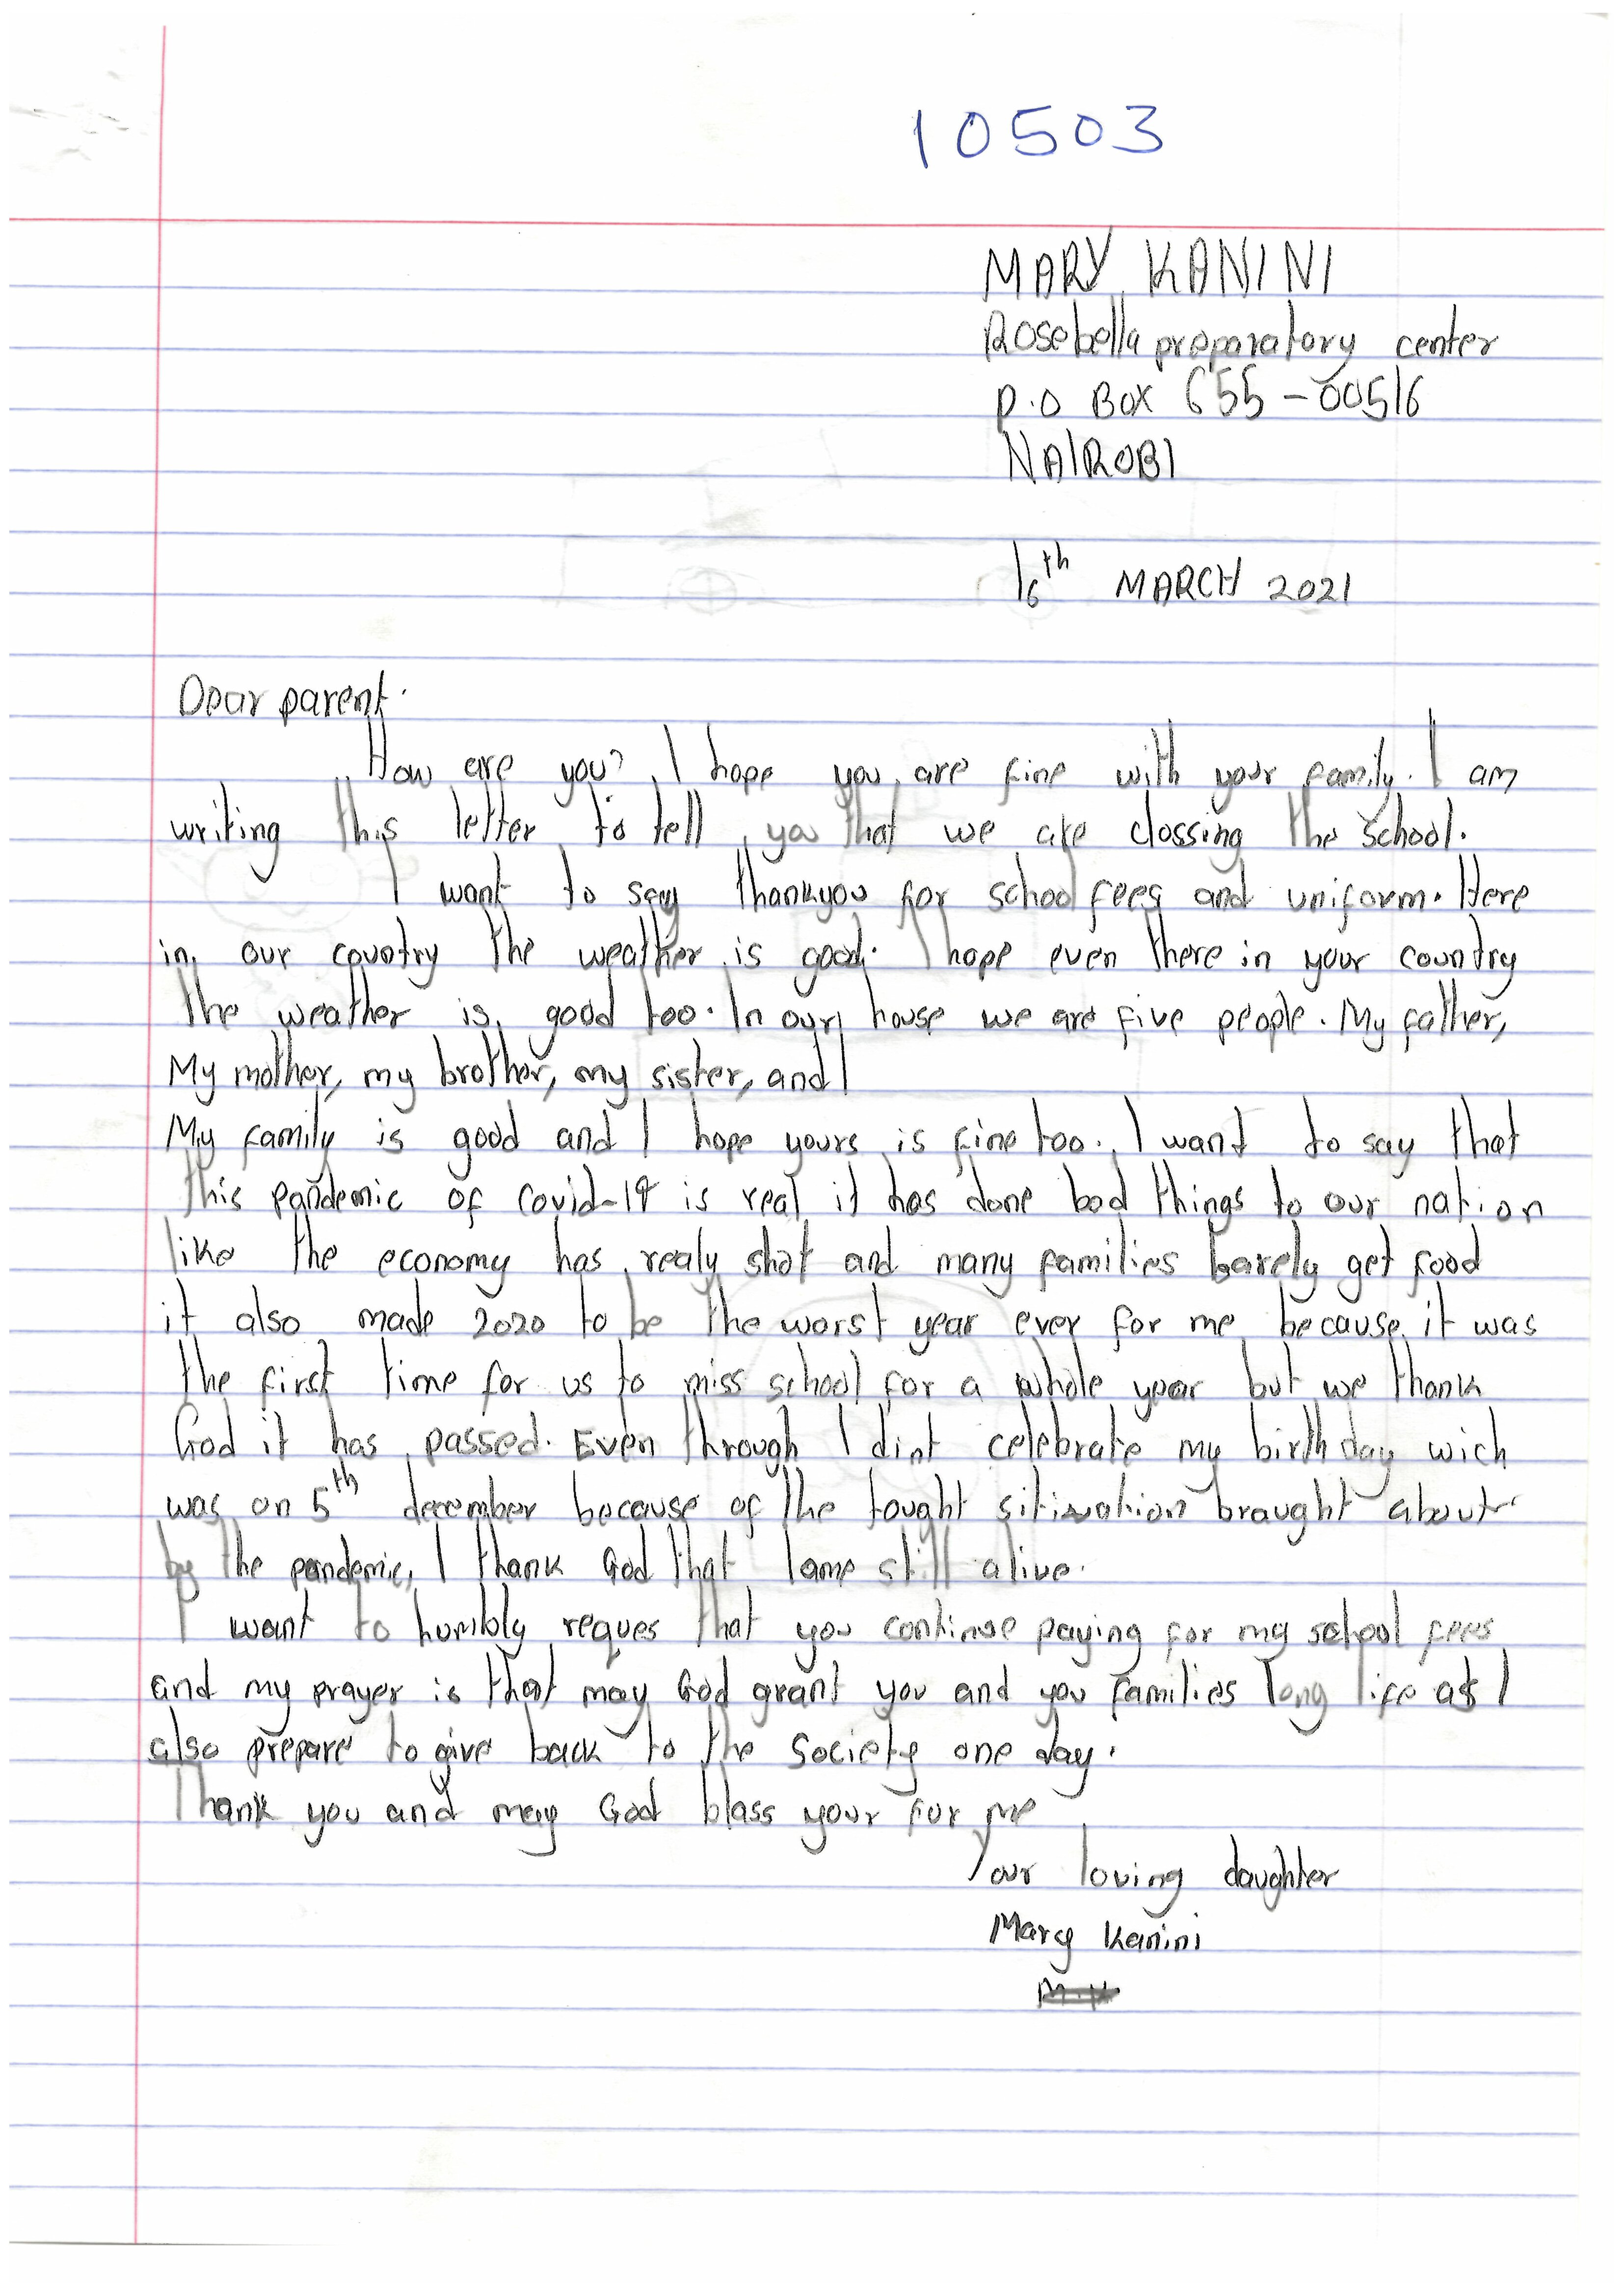 10503
MARY KANINI
Rosebella preparatory center
P.O BOX 655-00516
NAIROBI
16th MARCH 2021
Dear parent.
How are you? I hope you are fine with your family. I am
writing this letter to tell you that we are clossing the school.
I want to say thankyou for school fees and uniform. Here
in our country the weather is good. I hope even there in your country
the weather is good too. In our house we are five people. My father,
My mother, my brother, my sister, and I
My family is good and I hope yours is fine too. I want to say that
this pandemic of covid-19 is real it has done bad things to our nation
like the economy has realy shot and many families barely get food
it also made 2020 to be the worst year ever for me because it was
the first time for us to miss school for a whole year but we thank
God it has passed. Even through I dint celebrate my birthday wich
was on 5th december because of the tought sitiuation braught about
by the pandemic, I thank God that Iame still alive.
I want to humbly reques that you continue paying for my school fees
and my prayer is that may God grant you and you families long life as I
also prepare to give back to the society one day.
Thank you and may God blass your for me
Your loving daughter
Mary Kanini